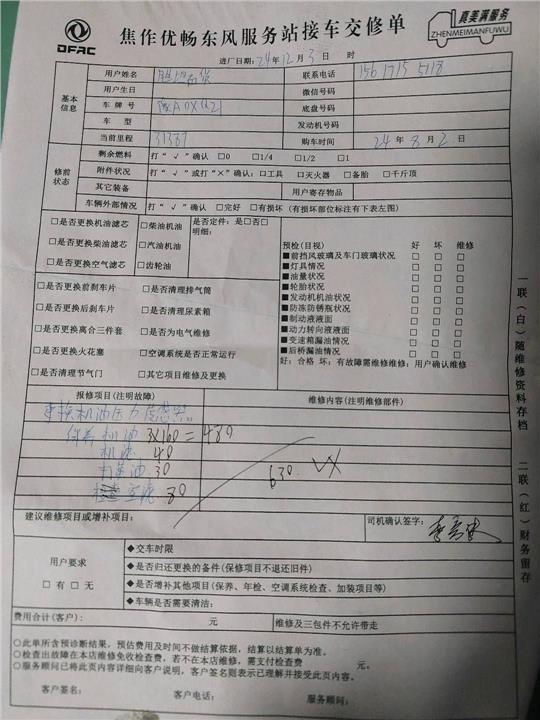 DFAC
焦作优畅东风服务站接车交修单
真美满服务
ZHENMEIMANFUWU
进厂日期: 24年12月3日 时
基本信息
用户姓名
联系电话 156 1715 5118
用户生日
微信号码
车牌号
底盘号码
车 型
发动机号码
当前里程 31387
购车时间 24年8月2日
修前状态
剩余燃料 打“√”确认 □0 □1/4 □1/2 □1
附件状况 打“√”或打“×”确认:□工具 □灭火器 □备胎 □千斤顶
其它装备
用户寄存物品
车辆外部情况 打“√”确认 □完好 □有损坏 (有损坏部位标注有下表左图)
□是否更换机油滤芯 □柴油机油 是否定件:是□否□
□是否更换柴油滤芯 □汽油机油 明细:
□是否更换空气滤芯 □齿轮油
预检(目视) 好 坏 维修
■前挡风玻璃及车门玻璃状况 □ □ □
■灯具情况 □ □ □
■油量状况 □ □ □
■轮胎状况 □ □ □
■发动机机油状况 □ □ □
■防冻防锈瓶状况 □ □ □
■制动液液面 □ □ □
■动力转向液液面 □ □ □
■变速箱漏油情况 □ □ □
■后桥漏油情况 □ □ □
好:合格 坏:有故障需维修维修:用户确认维修
□是否更换前刹车片 □是否清理排气筒
□是否更换后刹车片 □是否清理尿素箱
□是否更换离合三件套 □是否为电气维修
□是否更换火花塞 □空调系统是否正常运行
□是否清理节气门 □其它项目维修及更换
报修项目(注明故障)
维修内容(注明维修部件)
更换机油压力感应器
保养 机油 3X160=480
机滤 40
30
80
630
建议维修项目或增补项目:
司机确认签字:
用户要求
□有 □无
◆交车时限
◆是否归还更换的备件(保修项目不退还旧件)
◆是否增补其他项目(保养、年检、空调系统检查、加装项目等)
◆车辆是否需要清洁:
费用合计(客户): 元
维修及三包件不允许带走
○此单所含预诊断结果,预估费用及时间不做结算依据,结算以结算单为准。
○检查出故障在本店维修免收检查费,若不在本店维修,需支付检查费 元。
○服务顾问已将此页内容详细向客户说明,客户签名则表示已理解并接受此页内容。
客户签名: 客户电话: 服务顾问:
一联(白)随维修资料存档
二联(红)财务留存